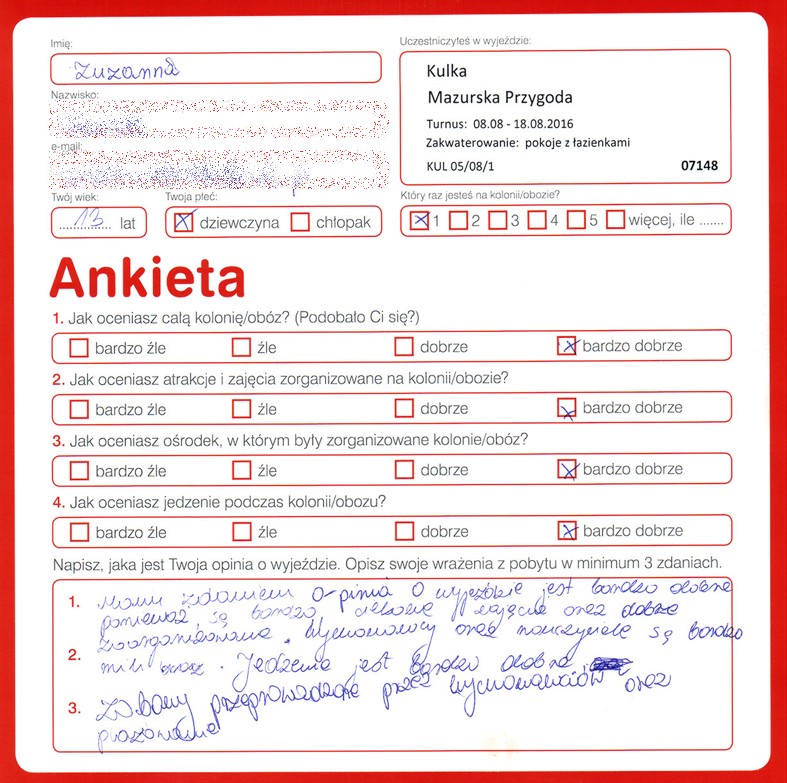 Imię:
Zuzanna
Nazwisko:
e-mail:
Twój wiek:
13 lat
Twoja płeć:
dziewczyna chłopak
Uczestniczyłeś w wyjeździe:
Kulka
Mazurska Przygoda
Turnus: 08.08 - 18.08.2016
Zakwaterowanie: pokoje z łazienkami
KUL 05/08/1 07148
Który raz jesteś na kolonii/obozie?
1 2 3 4 5 więcej, ile .......
Ankieta
1. Jak oceniasz całą kolonię/obóz? (Podobało Ci się?)
bardzo źle źle dobrze bardzo dobrze
2. Jak oceniasz atrakcje i zajęcia zorganizowane na kolonii/obozie?
bardzo źle źle dobrze bardzo dobrze
3. Jak oceniasz ośrodek, w którym były zorganizowane kolonie/obóz?
bardzo źle źle dobrze bardzo dobrze
4. Jak oceniasz jedzenie podczas kolonii/obozu?
bardzo źle źle dobrze bardzo dobrze
Napisz, jaka jest Twoja opinia o wyjeździe. Opisz swoje wrażenia z pobytu w minimum 3 zdaniach.
1. Moim zdaniem o-pinia o wyjeździe jest bardzo dobra
ponieważ, są bardzo ciekawe zajęcia oraz dobrze
zoorganizowane. Wychowawcy oraz nauczyciele są bardzo
2. mili . Jedzenie jest bardzo dobre
3. Zabawy przeprowadzane przez wychowawców oraz
plażowanie